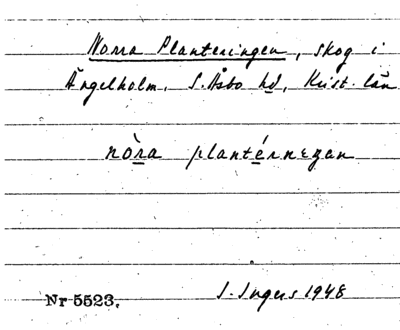 Norra Planteringen, skog i
Ängelholm, S. Åsbo hd, Krist. län
nòra plantérnɛŋən
Nr 5523.
I. Ingers 1948